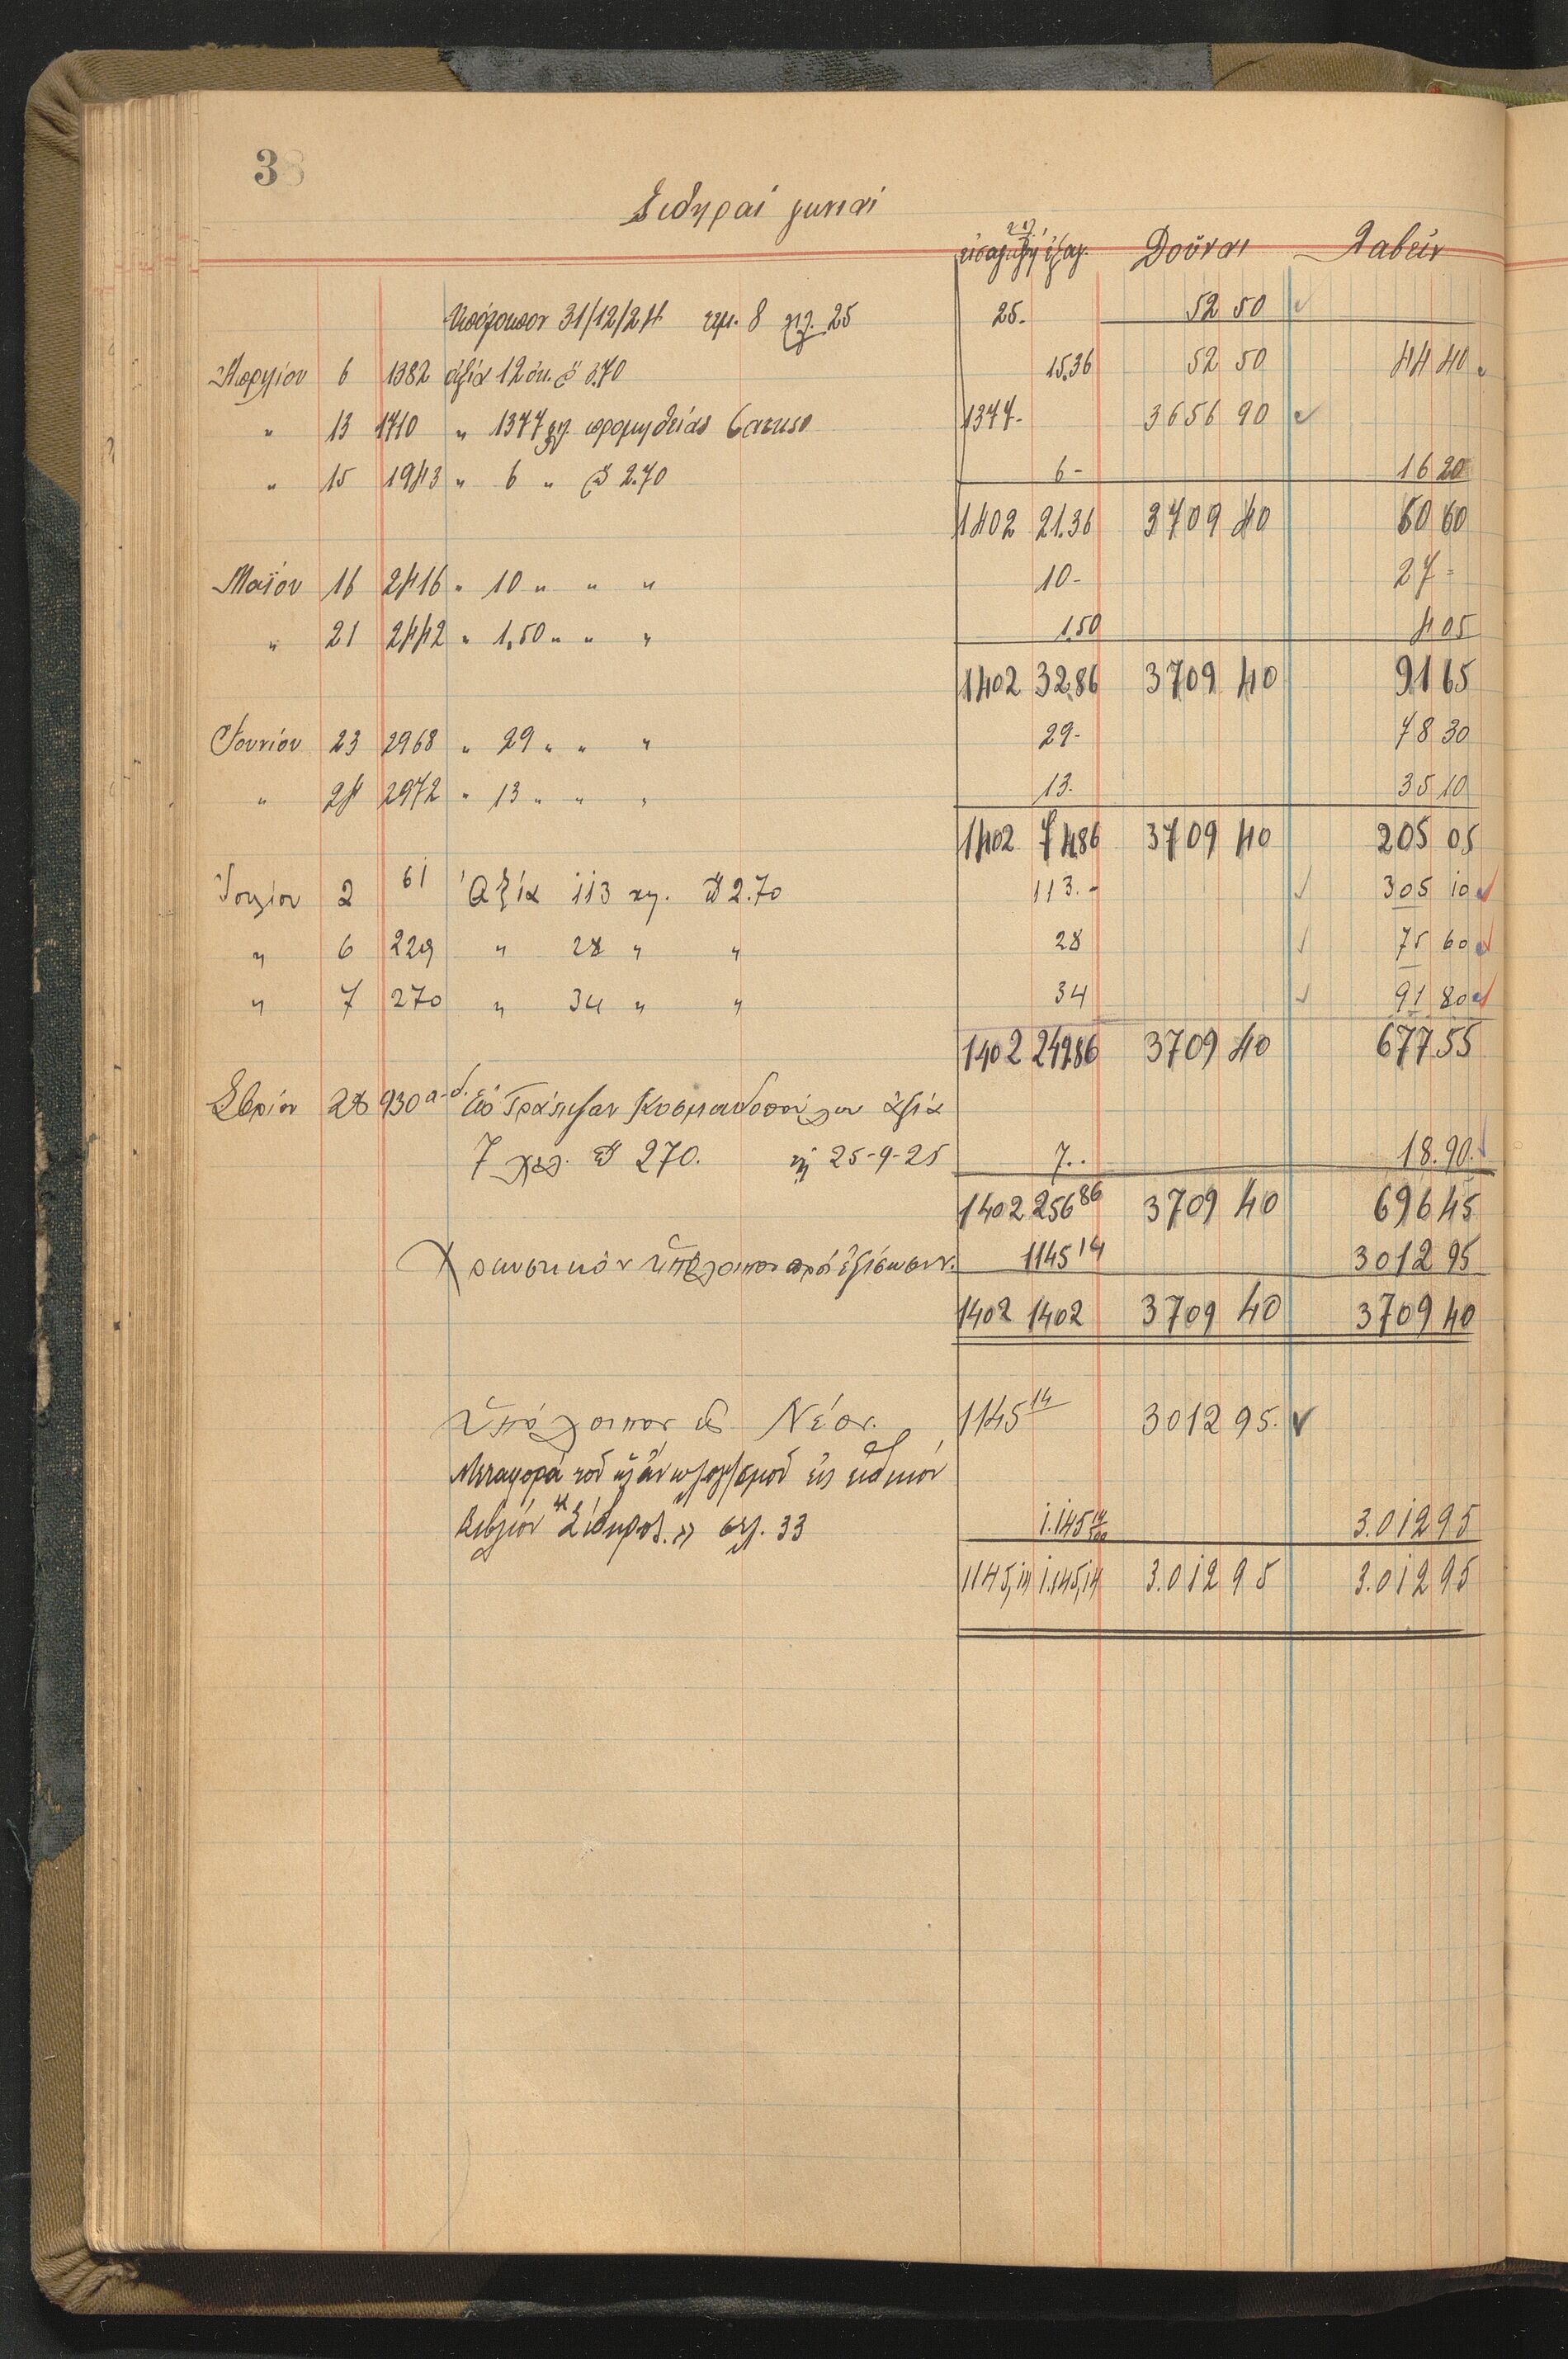 38
Σιδηραί γωνιαί
χιλ.
εἰσαγωγή ἐξαγ. Δοῦναι Λαβεῖν
Ὑπόλοιπον 31/12/24 τεμ. 8 χιλ. 25 25.- 52 50
Ἀπριλίου 6 1382 ἀξία 12 ὀκ. 3.70 15.36 52 50 44 40
" 13 1710 " 1377 χγ. προμηθείας 1377- 3656 90
" 15 1943 " 6 " 2.70 6- 16 20
1402 21.36 3709 40 60 60
Μαΐου 16 2416 " 10 " " " 10- 27 =
" 21 2442 " 1,50 " " " 1.50 4 05
1402 32.86 3709 40 91 65
Ἰουνίου 23 2968 " 29 " " " 29- 78 30
" 24 2972 " 13 " " " 13. 35 10
1402 74.86 3709 40 205 05
Ἰουλίου 2 61 Ἀξία 113 χγ. 2.70 113.- 305 10
" 6 229 " 28 " " 28 75 60
" 7 270 " 34 " " 34 91 80
1402 249.86 3709 40 677.55
Σβρίου 28 930 α-δ. Εἰς Τράπεζαν Κοσμαδοπούλου ἀξία
7 χιλ. 270. τῇ 25-9-25 7.. 18.90.
1402 256 86 3709 40 696 45
Χρεωστικὸν ὑπόλοιπον πρὸς ἐξίσωσιν. 1145 14 3012 95
1402 1402 3709 40 3709 40
Ὑπόλοιπον εἰς Νέον. 1145 14 3012 95.
Μεταφορὰ τοῦ ὡς ἄνω λογ/σμοῦ εἰς εἰδικόν
Βιβλίον "Σίδηρος." σελ. 33 1.145 14/100 3.012 95
1145,14 1.145,14 3.012 95 3.012 95